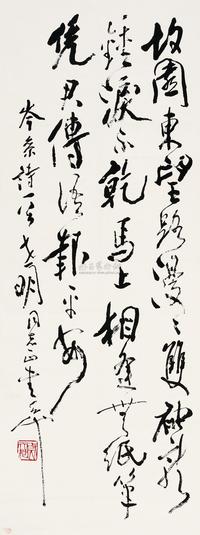 故園東望路漫〻雙袖龍
鍾淚不乾馬上相逢無紙筆
凭君傳語報平安
岑参詩一首 明同志正